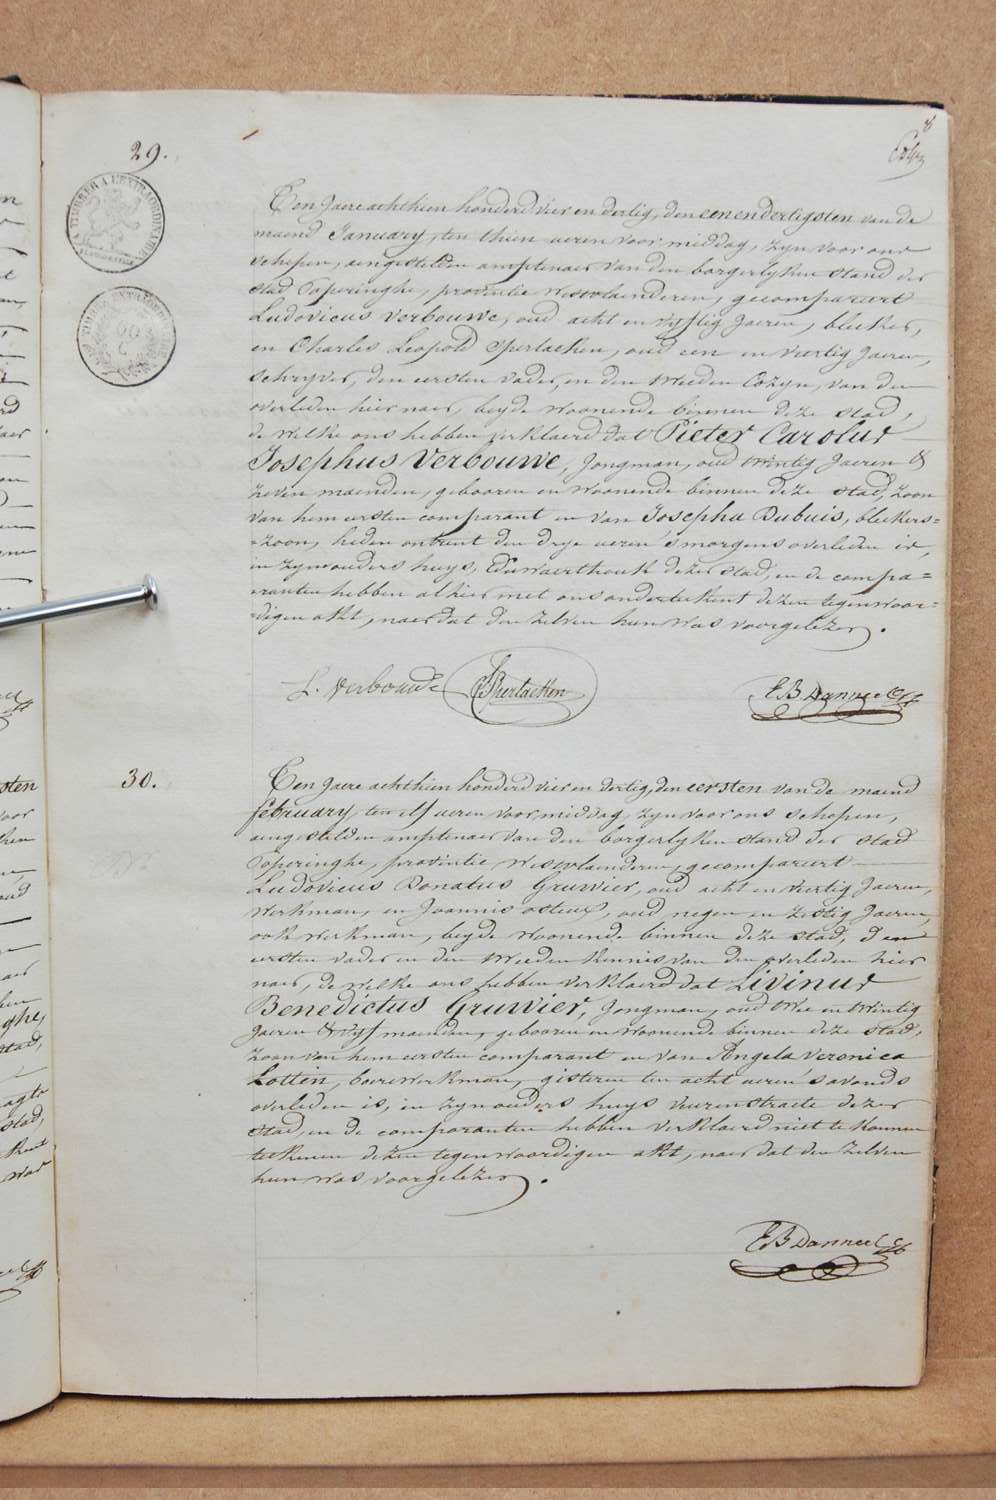 8
29.
TIMBRE A L'EXTRAORDINAIRE
Een Jaere achthien honderd vier en dertig, den eenendertigsten van de
maend January, ten thien ueren voor middag, zyn voor ons
schepen, aengestelden amptenaer van den borgerlyken stand der
stad Poperinghe, provintie Westvlaenderen, gecompareert
Ludovicus Verbouwe, oud acht en vyftig Jaeren, bleeker,
en Charles Leopold Sperlaeken, oud een en viertig Jaeren,
schryver, den eersten vader, en den tweeden Cozyn, van den
overleden hier naer, beyde woonende binnen deze stad,
de welke ons hebben verklaerd dat Pieter Carolus
Josephus Verbouwe, Jongman, oud twintig Jaeren &
zeven maenden, gebooren en woonende binnen deze stad, zoon
van hem eersten comparant en van Josepha Dubuis, bleekers=
=zoon, heden ontrent den drye ueren 's morgens overleden is,
in zyn ouders huys, Eduwaerthoek dezer stad, en de compa=
=ranten hebben alhier met ons onderteekent dezen tegenwoor=
=digen akt, naer dat den zelven hun was voorgelezen.
L. Verbouwe Sperlaeken E B Danneel
30.
Een Jaere achthien honderd vier en dertig, den eersten van de maend
february, ten elf ueren voor middag, zyn voor ons schepen,
aengestelden amptenaer van den borgerlyken stand der stad
Poperinghe, provintie Westvlaenderen, gecompareert
Ludovicus Donatus Gruwier, oud acht en viertig Jaeren,
werkman, en Joannis osteux, oud negen en zestig Jaeren,
ook werkman, beyde woonende binnen deze stad, den
eersten vader en den tweeden kennis van den overleden hier
naer, de welke ons hebben verklaerd dat Livinus
Benedictus Gruwier, Jongman, oud twee en twintig
Jaeren & vyf maenden, gebooren en woonende binnen deze stad,
zoon van hem eersten comparant en van Angela Veronica
Lottin, boerewerkman, gisteren ten acht ueren 's avonds
overleden is, in zyn ouders huys veurenstraete dezer
stad, en de comparanten hebben verklaerd niet te konnen
teekenen dezen tegenwoordigen akt, naer dat den zelven
hun was voorgelezen.
E B Danneel